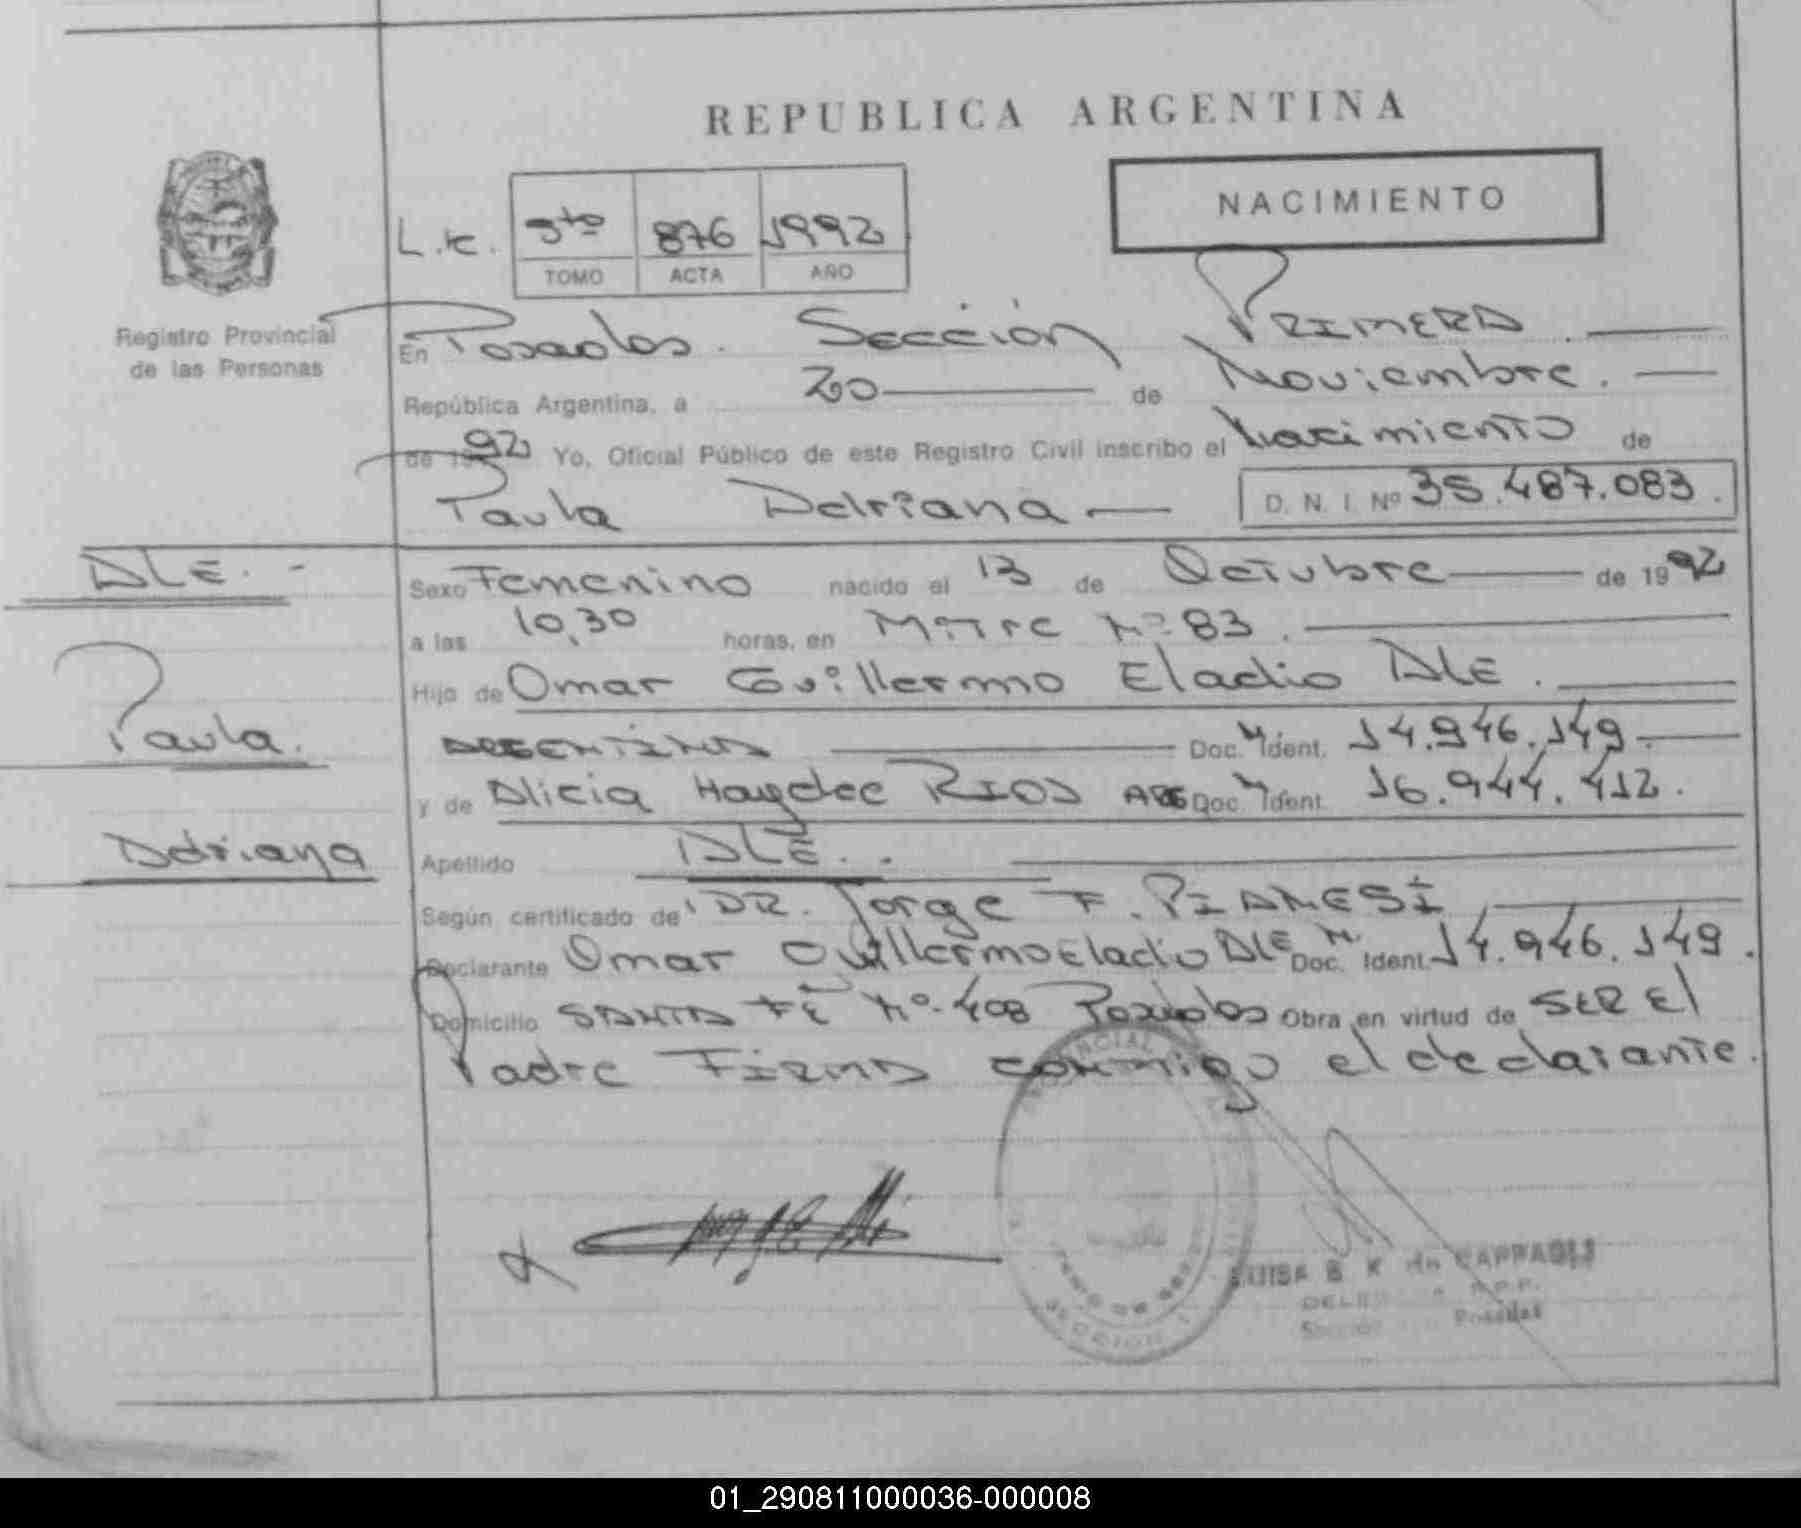 REPUBLICA ARGENTINA
NACIMIENTO
L.K. 5to 876 1992
TOMO ACTA AÑO
Registro Provincial
de las Personas
En Posadas. Sección PRIMERA.
República Argentina, a 20 de Noviembre.
de 1992 Yo, Oficial Público de este Registro Civil inscribo el Nacimiento de
Paula Adriana D. N. I. Nº 35.487.083.
ALE.
Sexo Femenino nacido el 13 de Octubre de 1992
a las 10,30 horas, en Mitre Nº 83.
Hijo de Omar Guillermo Eladio ALE.
Paula.
ARGENTINA Doc. M Ident. 14.946.149.
y de Alicia Haydee RIOS ARG Doc. M Ident. 16.944.412.
Adriana
Apellido ALE.
Según certificado de DR. Jorge F. PIANESI
Declarante Omar Guillermo Eladio ALE Doc. M. Ident. 14.946.149.
Domicilio SANTA FE Nº 408 Posadas Obra en virtud de SER El
Padre FIRMA conmigo el declarante.
LUISA B. K. de
Posadas
SECCION 1
01_290811000036-000008